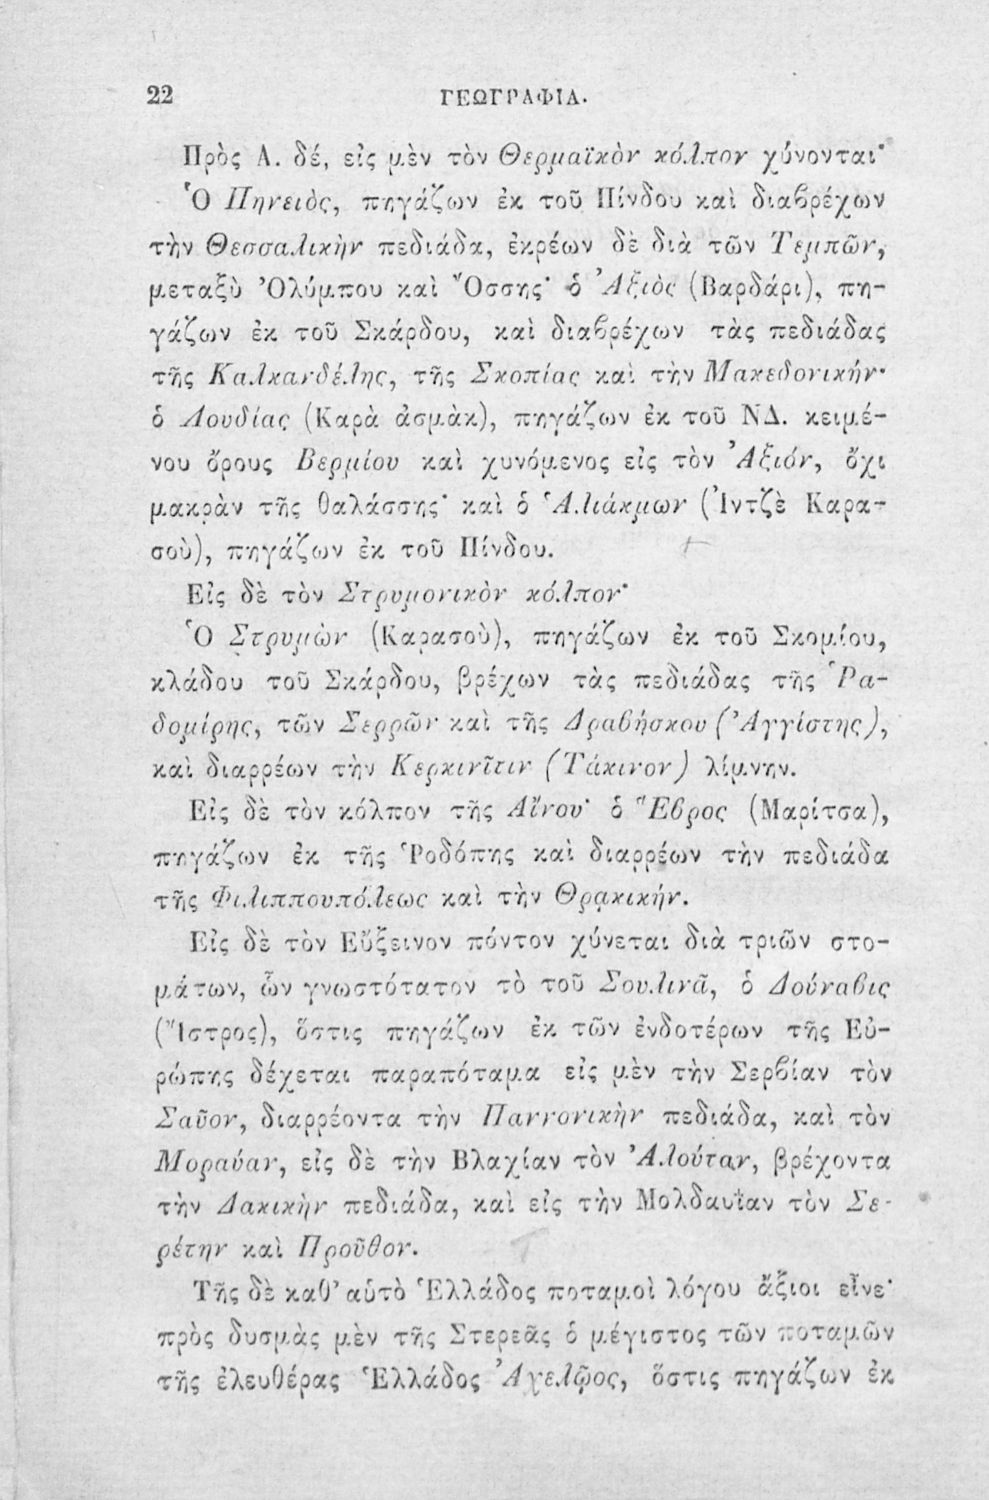 22 ΓΕΩΓΡΑΦΙΑ.
Πρὸς Α. δέ, εἰς μὲν τὸν Θερμαϊκὸν κόλπον χύνονται·
Ὁ Πηνειὸς, πηγάζων ἐκ τοῦ Πίνδου καὶ διαβρέχων
τὴν Θεσσαλικὴν πεδιάδα, ἐκρέων δὲ διὰ τῶν Τεμπῶν,
μεταξὺ Ὀλύμπου καὶ Ὄσσης· ὁ Ἀξιὸς (Βαρδάρι), πη-
γάζων ἐκ τοῦ Σκάρδου, καὶ διαβρέχων τὰς πεδιάδας
τῆς Καλκανδέλης, τῆς Σκοπίας καὶ τὴν Μακεδονικήν·
ὁ Λουδίας (Καρὰ ἀσμὰκ), πηγάζων ἐκ τοῦ ΝΔ. κειμέ-
νου ὄρους Βερμίου καὶ χυνόμενος εἰς τὸν Ἀξιόν, ὄχι
μακρὰν τῆς θαλάσσης· καὶ ὁ Ἁλιάκμων (Ἰντζὲ Καρα-
σοὺ), πηγάζων ἐκ τοῦ Πίνδου.
Εἰς δὲ τὸν Στρυμονικὸν κόλπον·
Ὁ Στρυμὼν (Καρασοὺ), πηγάζων ἐκ τοῦ Σκομίου,
κλάδου τοῦ Σκάρδου, βρέχων τὰς πεδιάδας τῆς Ῥα-
δομίρης, τῶν Σερρῶν καὶ τῆς Δραβήσκου (Ἀγγίστης),
καὶ διαρρέων τὴν Κερκινῖτιν (Τάκινον) λίμνην.
Εἰς δὲ τὸν κόλπον τῆς Αἴνου· ὁ Ἕβρος (Μαρίτσα),
πηγάζων ἐκ τῆς Ῥοδόπης καὶ διαρρέων τὴν πεδιάδα
τῆς Φιλιππουπόλεως καὶ τὴν Θρᾳκικήν.
Εἰς δὲ τὸν Εὔξεινον πόντον χύνεται διὰ τριῶν στο-
μάτων, ὧν γνωστότατον τὸ τοῦ Σουλινᾶ, ὁ Δούναβις
(Ἴστρος), ὅστις πηγάζων ἐκ τῶν ἐνδοτέρων τῆς Εὐ-
ρώπης δέχεται παραπόταμα εἰς μὲν τὴν Σερβίαν τὸν
Σαῦον, διαρρέοντα τὴν Παννονικὴν πεδιάδα, καὶ τὸν
Μοραύαν, εἰς δὲ τὴν Βλαχίαν τὸν Ἀλούταν, βρέχοντα
τὴν Δακικὴν πεδιάδα, καὶ εἰς τὴν Μολδαυΐαν τὸν Σε-
ρέτην καὶ Προῦθον.
Τῆς δὲ καθ' αὑτὸ Ἑλλάδος ποταμοὶ λόγου ἄξιοι εἶνε·
πρὸς δυσμὰς μὲν τῆς Στερεᾶς ὁ μέγιστος τῶν ποταμῶν
τῆς ἐλευθέρας Ἑλλάδος Ἀχελῷος, ὅστις πηγάζων ἐκ